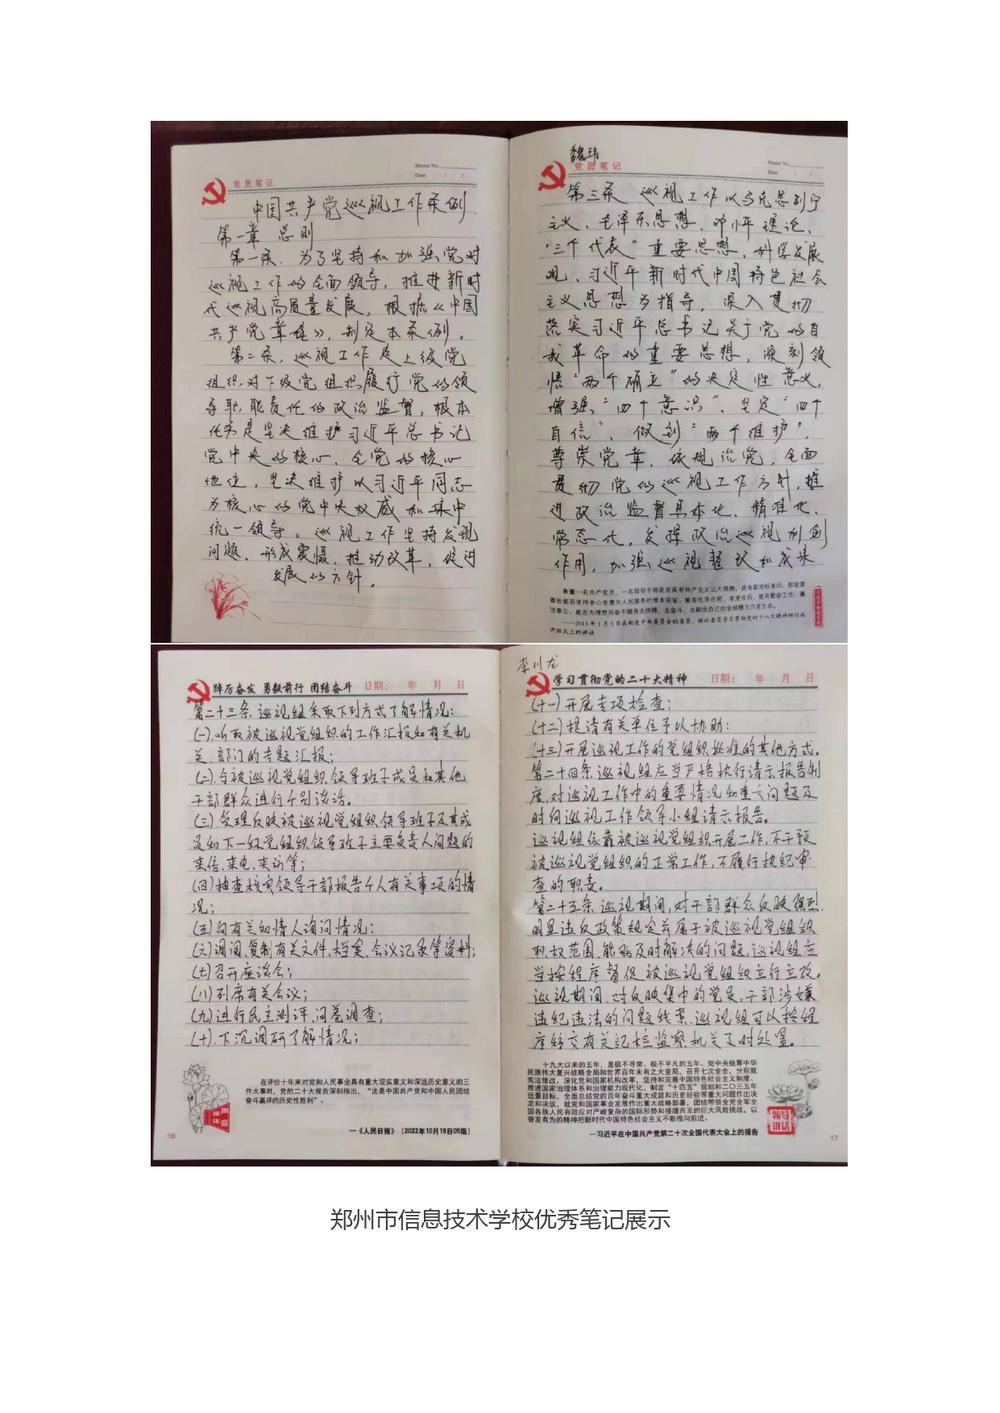 党员笔记
Memo No.
Date / /
中国共产党巡视工作条例
第一章 总则
第一条, 为了坚持和加强党对
巡视工作的全面领导，推进新时
代巡视高质量发展，根据《中国
共产党章程》，制定本条例。
第二条，巡视工作是上级党
组织对下级党组织履行党的领
导职能责任的政治监督，根本
任务是坚决维护习近平总书记
党中央的核心、全党的核心
地位，坚决维护以习近平同志
为核心的党中央权威和集中
统一领导。巡视工作坚持发现
问题、形成震慑，推动改革，促进
发展的方针。
魏玮
党员笔记
Memo No.
Date / /
第三条 巡视工作以马克思列宁
主义、毛泽东思想、邓小平理论、
“三个代表”重要思想、科学发展
观、习近平新时代中国特色社会
主义思想为指导，深入贯彻
落实习近平总书记关于党的自
我革命的重要思想，深刻领
悟“两个确立”的决定性意义，
增强“四个意识”、坚定“四个
自信”、做到“两个维护”，
尊崇党章，依规治党，全面
贯彻党的巡视工作方针，推
进政治监督具体化、精准化、
常态化，发挥政治巡视利剑
作用，加强巡视整改和成果
衡量一名共产党员、一名领导干部是否具有共产主义远大理想，是有客观标准的，那就要
看他能否坚持全心全意为人民服务的根本宗旨，能否吃苦在前、享受在后，能否勤奋工作、廉
洁奉公，能否为理想而奋不顾身去拼搏、去奋斗、去献出自己的全部精力乃至生命。
——2013年1月5日在新进中央委员会的委员、候补委员学习贯彻党的十八大精神研讨班
开班式上的讲话
踔厉奋发 勇毅前行 团结奋斗 日期： 年 月 日
第二十三条 巡视组采取下列方式了解情况：
(一).听取被巡视党组织的工作汇报和有关机
关、部门的专题汇报；
(二).与被巡视党组织领导班子成员和其他
干部群众进行个别谈话。
(三).受理反映被巡视党组织领导班子及其成
员和下一级党组织领导班子主要负责人问题的
来信、来电、来访等；
(四)抽查核实领导干部报告个人有关事项的情
况；
(五)向有关知情人询问情况；
(六)调阅、复制有关文件、档案、会议记录等资料；
(七)召开座谈会；
(八)列席有关会议；
(九)进行民主测评、问卷调查；
(十).下沉调研了解情况；
在评价十年来对党和人民事业具有重大现实意义和深远历史意义的三
件大事时，党的二十大报告深刻指出，“这是中国共产党和中国人民团结
奋斗赢得的历史性胜利”。
—《人民日报》（2022年10月18日05版）
16
李川龙
学习贯彻党的二十大精神 日期： 年 月 日
(十一)开展专项检查；
(十二)提请有关单位予以协助；
(十三)开展巡视工作的党组织批准的其他方式。
第二十四条.巡视组应当严格执行请示报告制
度,对巡视工作中的重要情况和重大问题及
时向巡视工作领导小组请示报告。
巡视组依靠被巡视党组织开展工作,不干预
被巡视党组织的正常工作,不履行执纪审
查的职责。
第二十五条.巡视期间,对干部群众反映强烈、
明显违反政策规定并属于被巡视党组织
职权范围,能够及时解决的问题,巡视组应
当按程序督促被巡视党组织立行立改。
巡视期间,对反映集中的党员、干部涉嫌
违纪违法的问题线索,巡视组可以按程
序移交有关纪检监察机关及时处置。
十九大以来的五年，是极不寻常、极不平凡的五年。党中央统筹中华
民族伟大复兴战略全局和世界百年未有之大变局，召开七次全会，分别就
宪法修改，深化党和国家机构改革，坚持和完善中国特色社会主义制度、
推进国家治理体系和治理能力现代化，制定“十四五”规划和二〇三五年
远景目标，全面总结党的百年奋斗重大成就和历史经验等重大问题作出决
定和决议，就党和国家事业发展作出重大战略部署，团结带领全党全军全
国各族人民有效应对严峻复杂的国际形势和接踵而至的巨大风险挑战，以
奋发有为的精神把新时代中国特色社会主义不断推向前进。
—习近平在中国共产党第二十次全国代表大会上的报告
领导讲话
17
郑州市信息技术学校优秀笔记展示